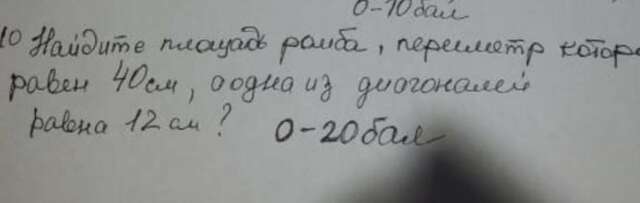 0-10бал
10 Найдите площадь ромба, периметр котор
равен 40см, а одна из диагоналей
равна 12см? 0-20бал